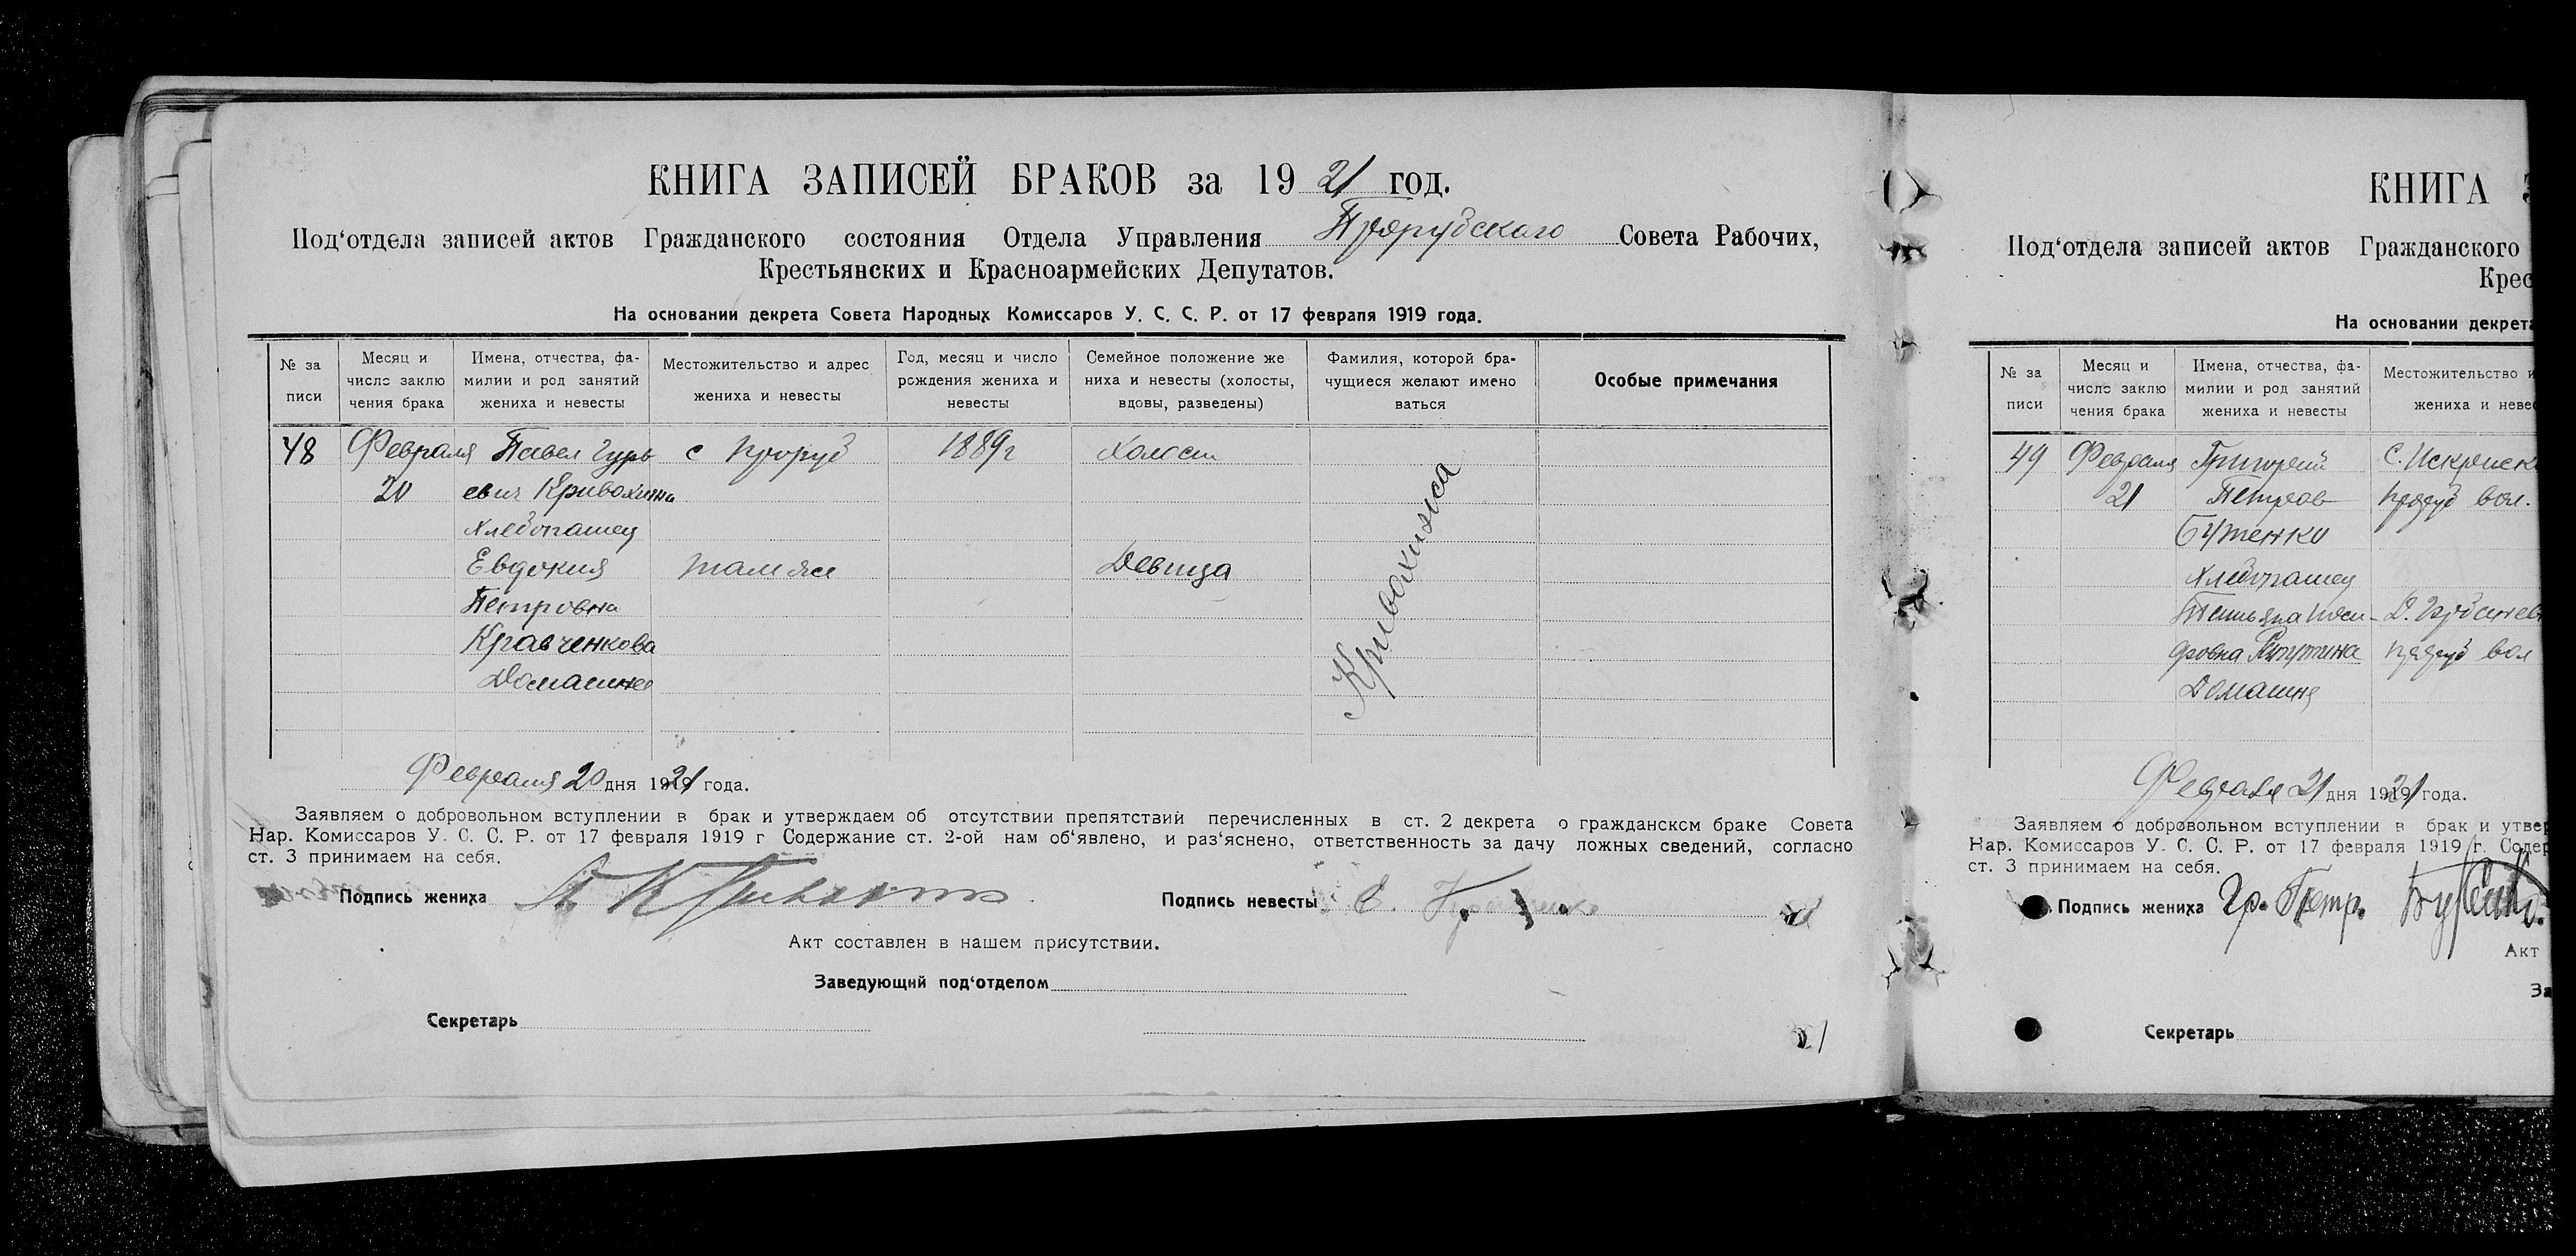 КНИГА ЗАПИСЕЙ БРАКОВ за 1921 год.
Под‘отдела записей актов Гражданского состояния Отдела Управления Прорубского Совета Рабочих,
Крестьянских и Красноармейских Депутатов.
На основании декрета Совета Народных Комиссаров У. С. С. Р. от 17 февраля 1919 года.
№ за писи
Месяц и число заклю чения брака
Имена, отчества, фа- милии и род занятий жениха и невесты
Местожительство и адрес жениха и невесты
Год, месяц и число рождения жениха и невесты
Семейное положение же ниха и невесты (холосты, вдовы, разведены)
Фамилия, которой бра- чущиеся желают имено ваться
Особые примечания
48 Февраля Павел Гурь с Проруб 1889г Холост
20 евич Кривохижа
Хлебопашец
Евдокия там же Девица
Петровна
Кравченкова
Домашнее
Кривохижа
Февраля 20 дня 1921 года.
Заявляем о добровольном вступлении в брак и утверждаем об отсутствии препятствий перечисленных в ст. 2 декрета о гражданском браке Совета
Нар. Комиссаров У. С. С. Р. от 17 февраля 1919 г Содержание ст. 2-ой нам об‘явлено, и раз‘яснено, ответственность за дачу ложных сведений, согласно
ст. 3 принимаем на себя.
Подпись жениха Подпись невесты Е.
Акт составлен в нашем присутствии.
Заведующий под‘отделом
Секретарь
КНИГА
Под‘отдела записей актов Гражданского
Крес
На основании декрета
№ за писи
Месяц и число заклю чения брака
Имена, отчества, фа- милии и род занятий жениха и невесты
Местожительство и
жениха и невес
49 Февраля Григорий С. Искриск
21 Петров Проруб вол.
Бутенко
Хлебопашец
Татьяна
Проруб вол
Домашне
Февраля 21 дня 1921 года.
Заявляем о добровольном вступлении в брак и утвер
Нар. Комиссаров У. С. С. Р. от 17 февраля 1919 г. Содер
ст. 3 принимаем на себя.
Подпись жениха Гр. Петр. Бутенко.
Акт
За
Секретарь